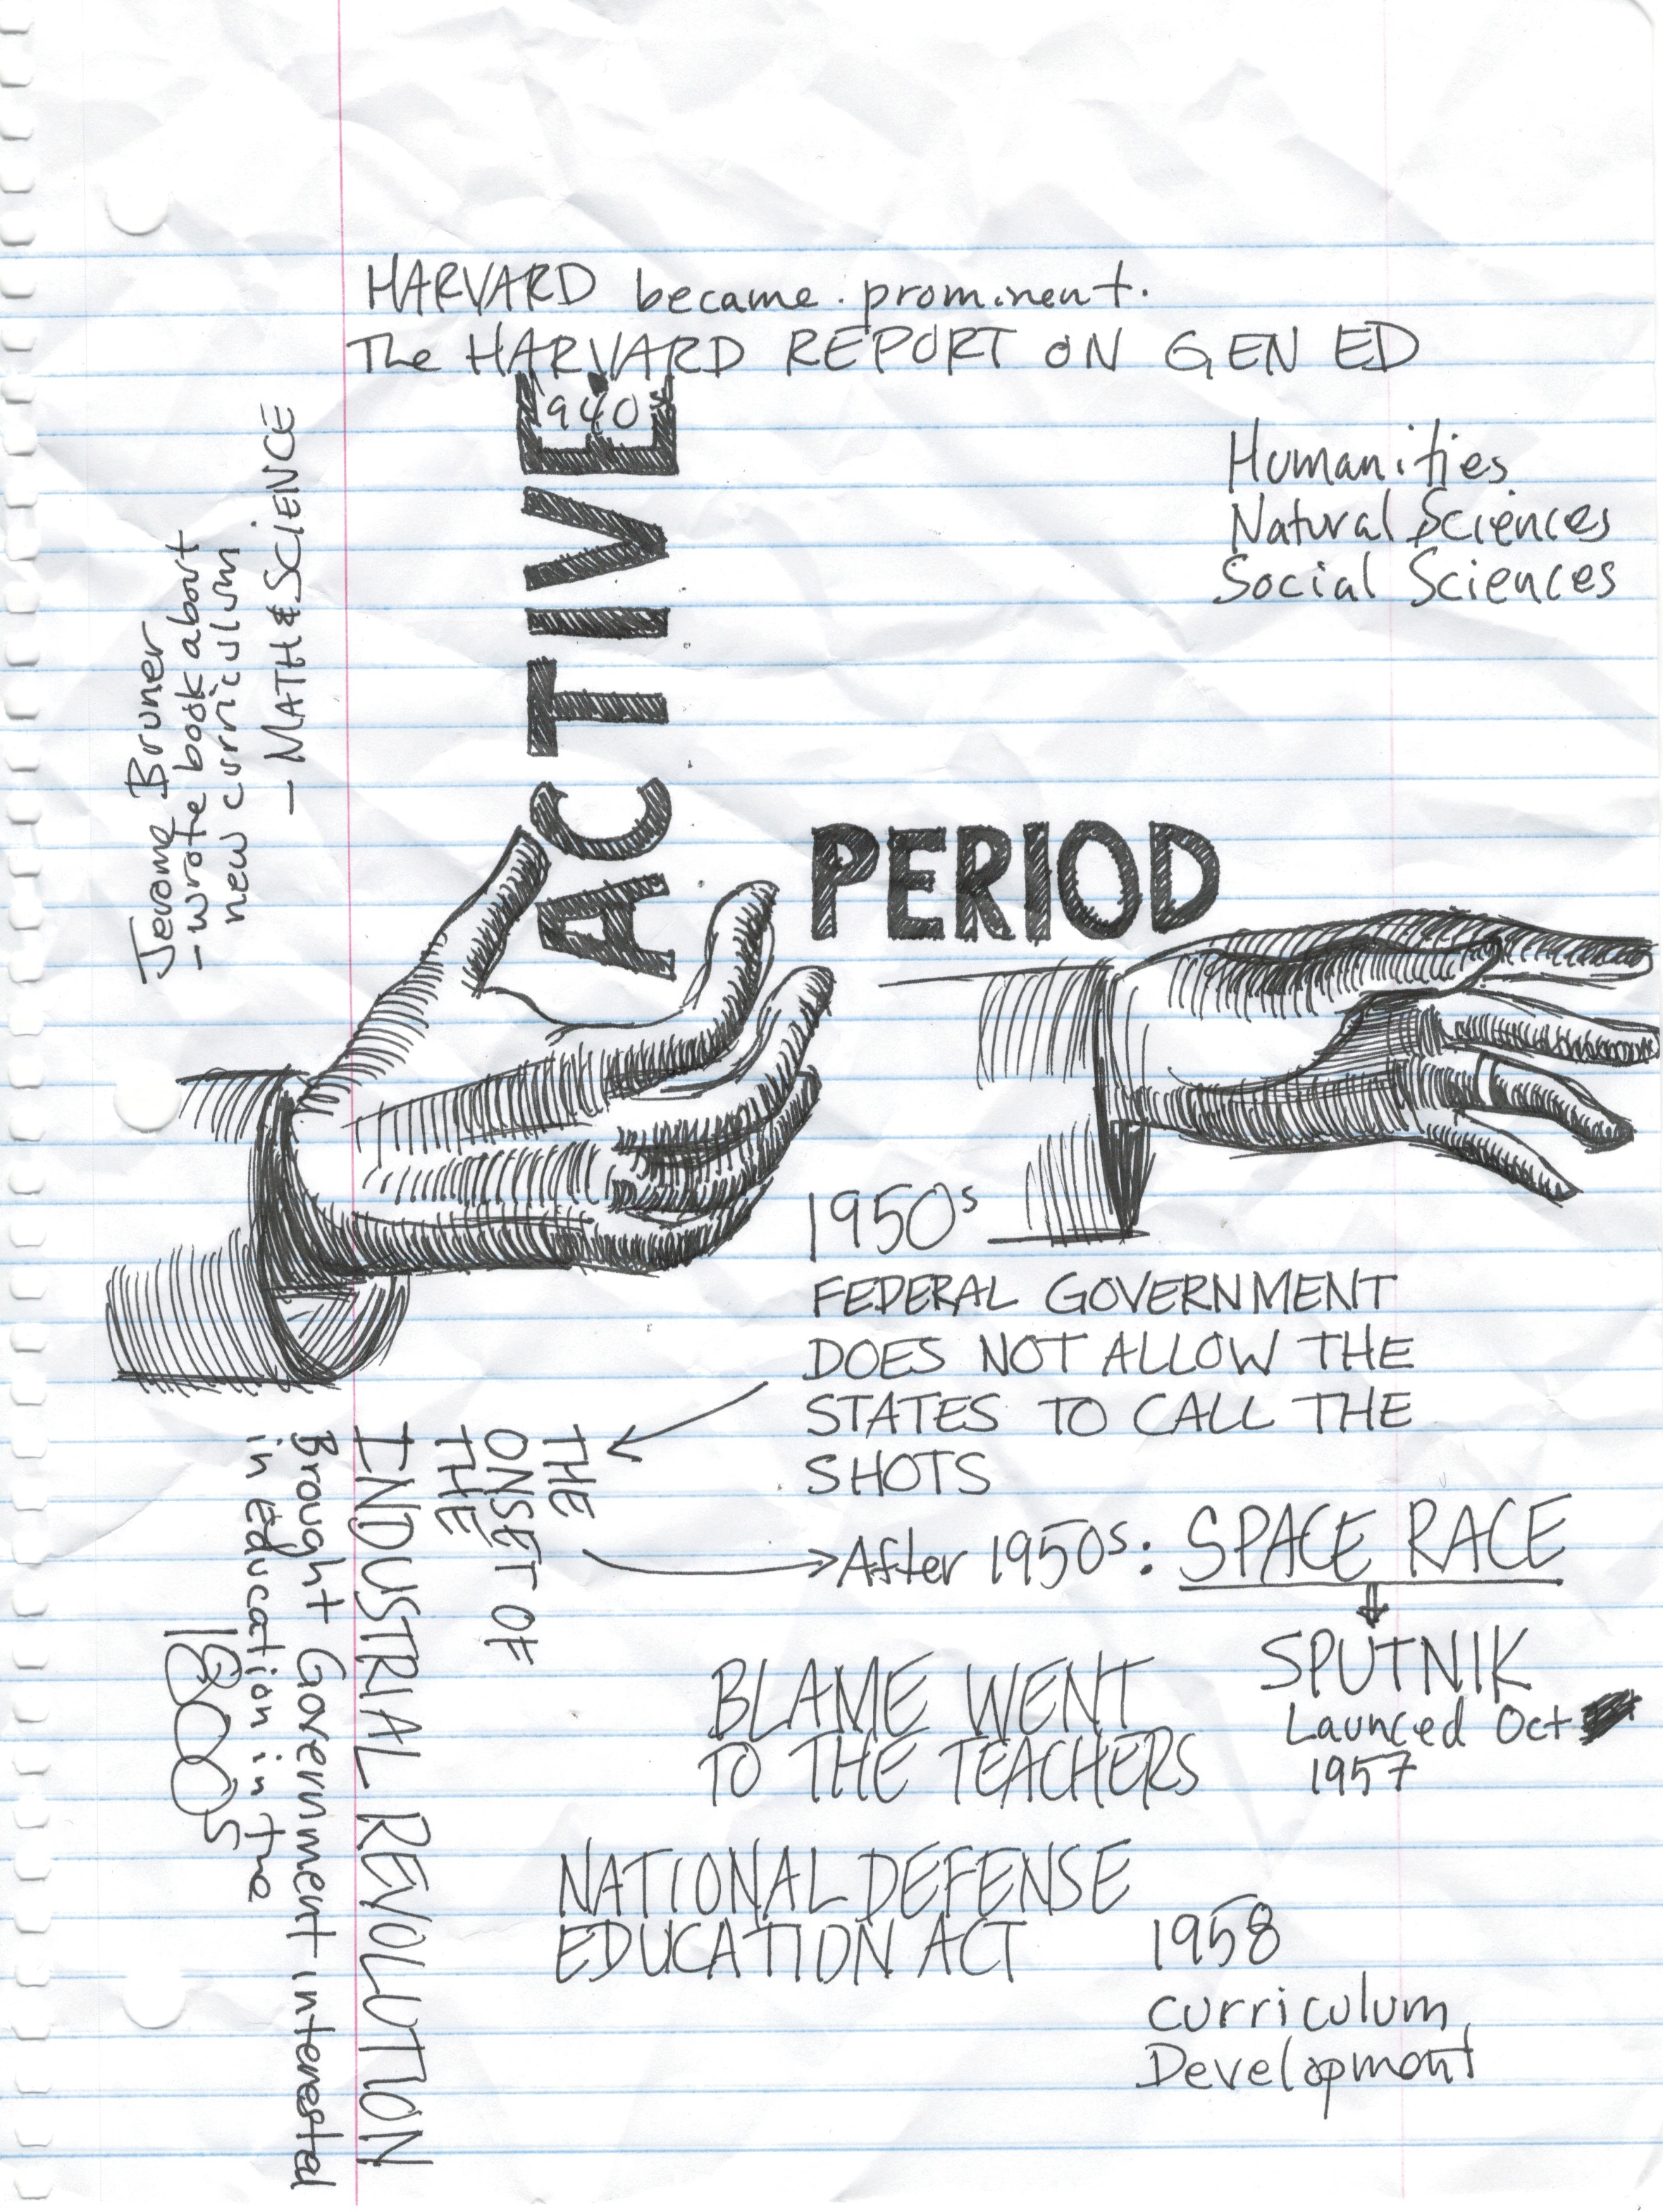 HARVARD became prominent.
The HARVARD REPORT ON GEN ED
1940s
Humanities
Natural Sciences
Social Sciences
Jerome Bruner
- wrote book about
new curriculum
- MATH & SCIENCE
ACTIVE
PERIOD
1950s
FEDERAL GOVERNMENT
DOES NOT ALLOW THE
STATES TO CALL THE
SHOTS
THE
ONSET OF
THE
INDUSTRIAL REVOLUTION
Brought Government interested
in education in the
1800s
After 1950s: SPACE RACE
SPUTNIK
Launced Oct
1957
BLAME WENT
TO THE TEACHERS
NATIONAL DEFENSE
EDUCATION ACT
1958
curriculum
Development